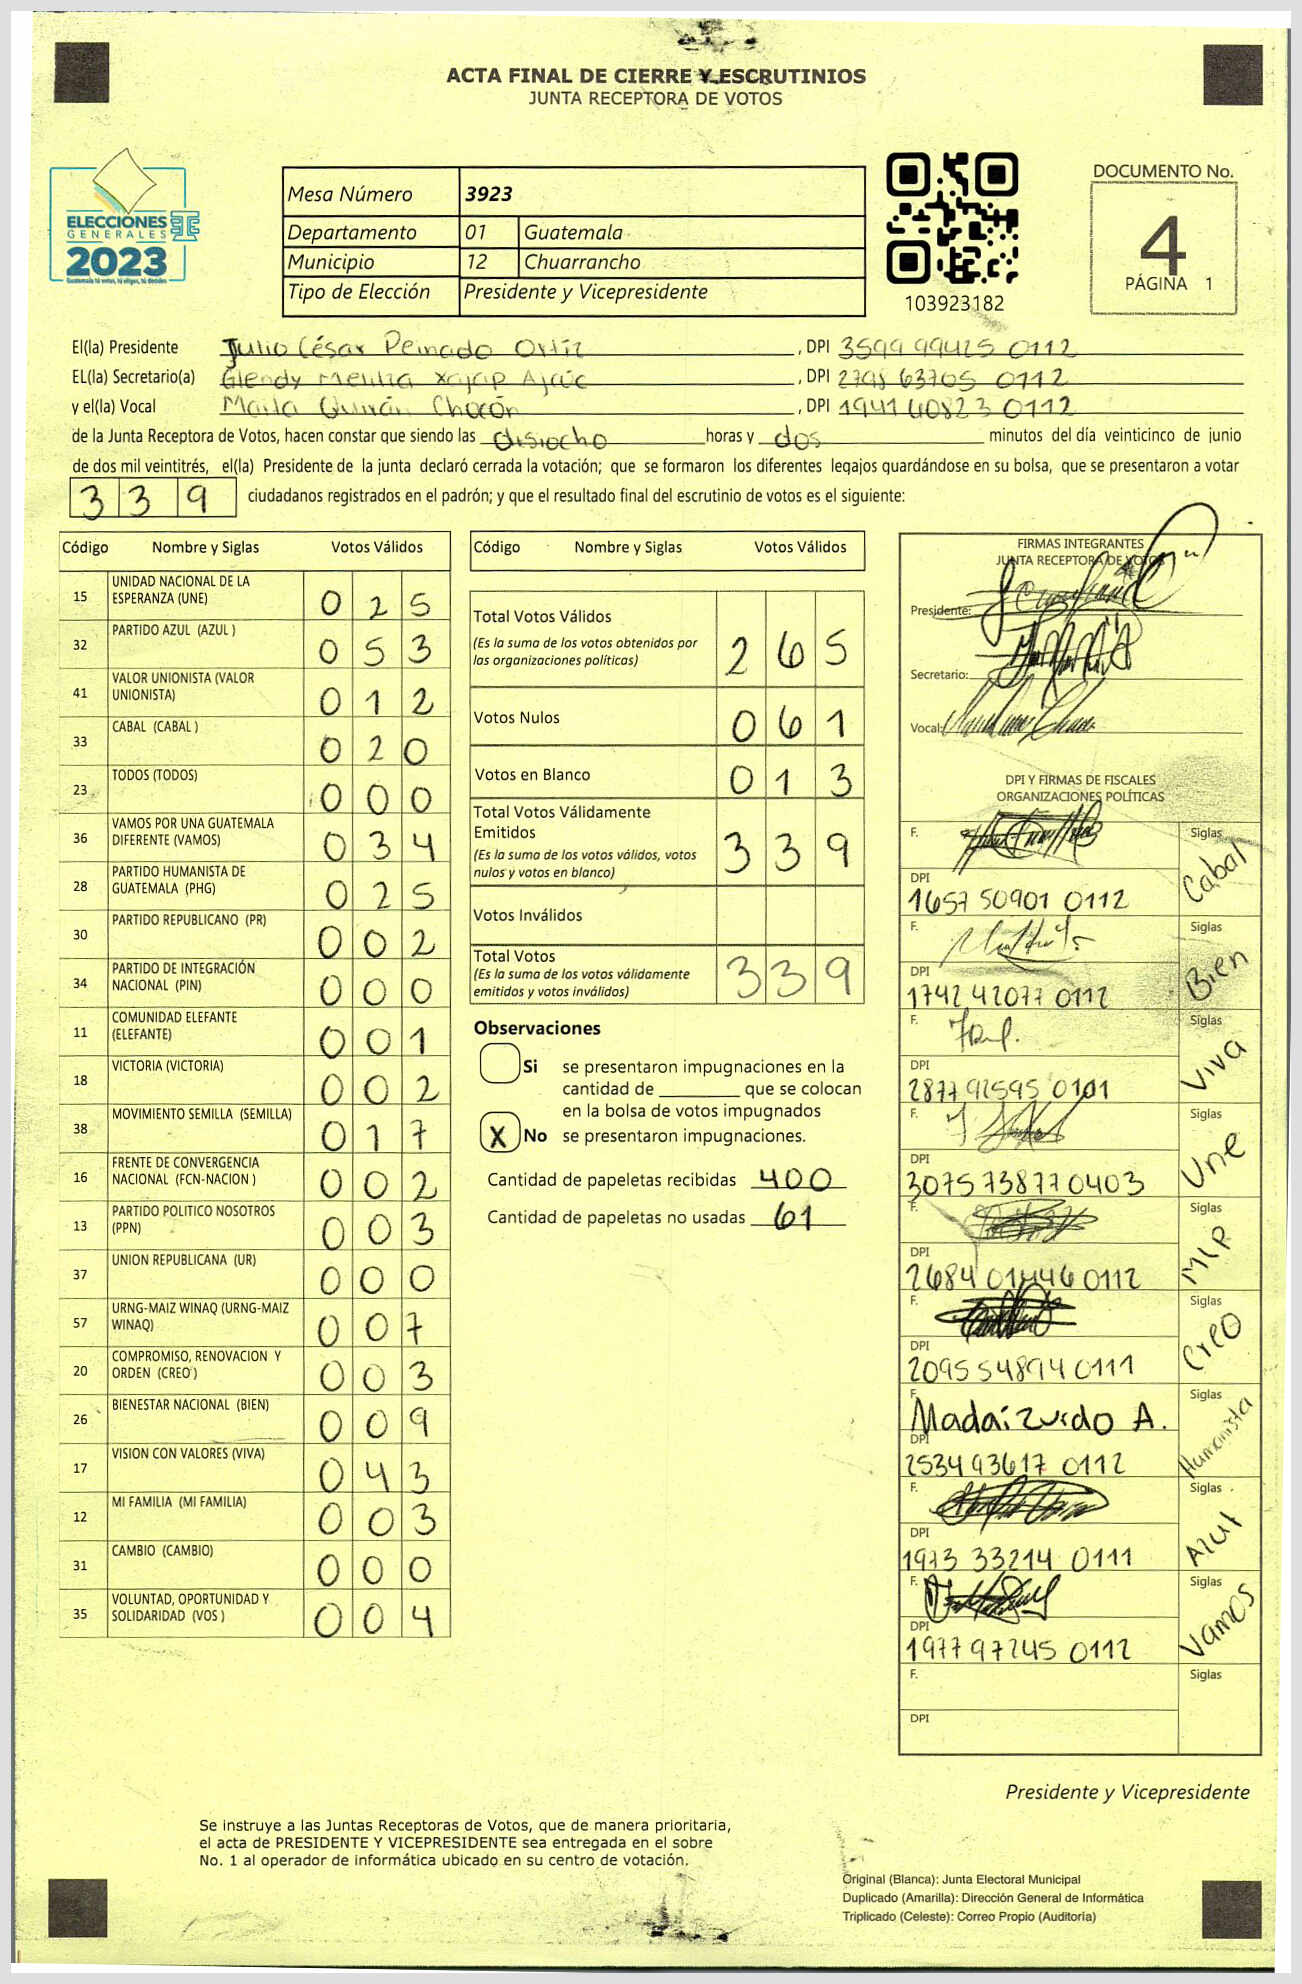 ACTA FINAL DE CIERRE Y ESCRUTINIOS
JUNTA RECEPTORA DE VOTOS
ELECCIONES
GENERALES
2023
Guatemala tú votas, tú eliges, tú decides
Mesa Número 3923
Departamento 01 Guatemala
Municipio 12 Chuarrancho
Tipo de Elección Presidente y Vicepresidente
103923182
DOCUMENTO No.
4
PÁGINA 1
El(la) Presidente Julio César Peinado Ortíz , DPI 3599 99425 0112
EL(la) Secretario(a) Glendy Melina Xajap Ajcúc , DPI 2798 63705 0112
y el(la) Vocal Marta Quirán Chocón , DPI 1941 60823 0112
de la Junta Receptora de Votos, hacen constar que siendo las disiocho horas y dos minutos del día veinticinco de junio
de dos mil veintitrés, el(la) Presidente de la junta declaró cerrada la votación; que se formaron los diferentes legajos guardándose en su bolsa, que se presentaron a votar
339 ciudadanos registrados en el padrón; y que el resultado final del escrutinio de votos es el siguiente:
Código Nombre y Siglas Votos Válidos
15 UNIDAD NACIONAL DE LA ESPERANZA (UNE) 025
32 PARTIDO AZUL (AZUL ) 053
41 VALOR UNIONISTA (VALOR UNIONISTA) 012
33 CABAL (CABAL ) 020
23 TODOS (TODOS) 000
36 VAMOS POR UNA GUATEMALA DIFERENTE (VAMOS) 034
28 PARTIDO HUMANISTA DE GUATEMALA (PHG) 025
30 PARTIDO REPUBLICANO (PR) 002
34 PARTIDO DE INTEGRACIÓN NACIONAL (PIN) 000
11 COMUNIDAD ELEFANTE (ELEFANTE) 001
18 VICTORIA (VICTORIA) 002
38 MOVIMIENTO SEMILLA (SEMILLA) 017
16 FRENTE DE CONVERGENCIA NACIONAL (FCN-NACION ) 002
13 PARTIDO POLITICO NOSOTROS (PPN) 003
37 UNION REPUBLICANA (UR) 000
57 URNG-MAIZ WINAQ (URNG-MAIZ WINAQ) 007
20 COMPROMISO, RENOVACION Y ORDEN (CREO ) 003
26 BIENESTAR NACIONAL (BIEN) 009
17 VISION CON VALORES (VIVA) 043
12 MI FAMILIA (MI FAMILIA) 003
31 CAMBIO (CAMBIO) 000
35 VOLUNTAD, OPORTUNIDAD Y SOLIDARIDAD (VOS ) 004
Código Nombre y Siglas Votos Válidos
Total Votos Válidos 265
(Es la suma de los votos obtenidos por
las organizaciones políticas)
Votos Nulos 061
Votos en Blanco 013
Total Votos Válidamente
Emitidos 339
(Es la suma de los votos válidos, votos
nulos y votos en blanco)
Votos Inválidos
Total Votos 339
(Es la suma de los votos válidamente
emitidos y votos inválidos)
Observaciones
Si se presentaron impugnaciones en la
cantidad de ________ que se colocan
en la bolsa de votos impugnados
X No se presentaron impugnaciones.
Cantidad de papeletas recibidas 400
Cantidad de papeletas no usadas 61
FIRMAS INTEGRANTES
JUNTA RECEPTORA DE VOTOS
Presidente:
Secretario:
Vocal:
DPI Y FIRMAS DE FISCALES
ORGANIZACIONES POLÍTICAS
F. Siglas Cabal
DPI 1657 50901 0112
F. Siglas Bien
DPI 1742 42077 0112
F. Siglas Viva
DPI 2877 92595 0101
F. Siglas Une
DPI 3075 73877 0403
F. Siglas MLP
DPI 2684 01446 0112
F. Siglas Creo
DPI 2095 54894 0111
F. Madaí Zurdo A. Siglas Humanista
DPI 2534 93617 0112
F. Siglas Azul
DPI 1973 33214 0111
F. Siglas Vamos
DPI 1977 97245 0112
F. Siglas
DPI
Presidente y Vicepresidente
Se instruye a las Juntas Receptoras de Votos, que de manera prioritaria,
el acta de PRESIDENTE Y VICEPRESIDENTE sea entregada en el sobre
No. 1 al operador de informática ubicado en su centro de votación.
Original (Blanca): Junta Electoral Municipal
Duplicado (Amarilla): Dirección General de Informática
Triplicado (Celeste): Correo Propio (Auditoria)